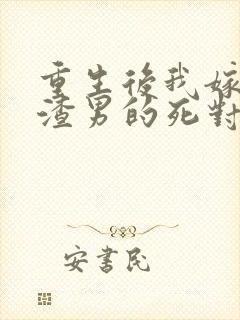 重生後我嫁
渣男的死對
安書民